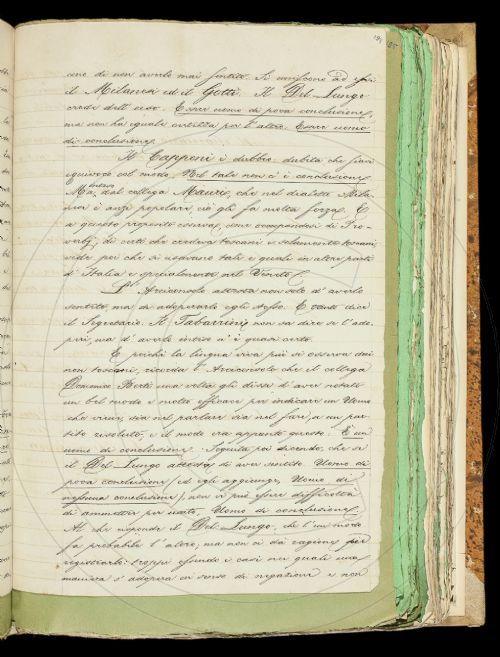 cene di non averlo mai sentito. Si uniscono ad essi
il Milanesi ed il Gotti. Il Del-Lungo
crede dell'uso. Essere uomo di poca conclusione,
ma non ha eguale certezza per l'altro. Essere uomo
di conclusione.
Il Capponi è dubbio: dubita che siavi
equivoco col modo. Nel tale non c'è conclusione.
Ma, inteso dal collega Mauri, che nel dialetto Mila-
nese è anzi popolare, ciò gli fa molta forza. E
a questo proposito osserva, come occupandosi di Pro-
verbj, di certi che credeva toscani e solamente toscani,
vide poi che si usavano tali e quali in altre parti
d'Italia e specialmente nel Veneto.
L'Arciconsolo attesta non solo d'averlo
sentito, ma di adoperarlo egli stesso. E tanto dice
il Segretario. Il Tabarrini, non sa dire se l'ado-
peri, ma d'averlo inteso n'è quasi certo.
E perchè la lingua viva più si osserva dai
non toscani, ricorda l'Arciconsolo che il collega
Domenico Berti una volta gli disse d'aver notato
un bel modo e molto efficace per indicare un Uomo
che viene, sia nel parlare sia nel fare, a un par-
tito resoluto, e il modo era appunto questo: È un
uomo di conclusione. Seguita poi dicendo, che se
il Del-Lungo attesta di aver sentito. Uomo di
poca conclusione (e egli aggiunge, Uomo di
nessuna conclusione), non vi può essere difficoltà
di ammetter per usato, Uomo di conclusione.
Al che risponde il Del-Lungo, che l'un modo
fa probabile l'altro; ma non ci dà ragione per
registrarlo: troppi essendo i casi nei quali una
maniera s'adopera in senso di negazione e non